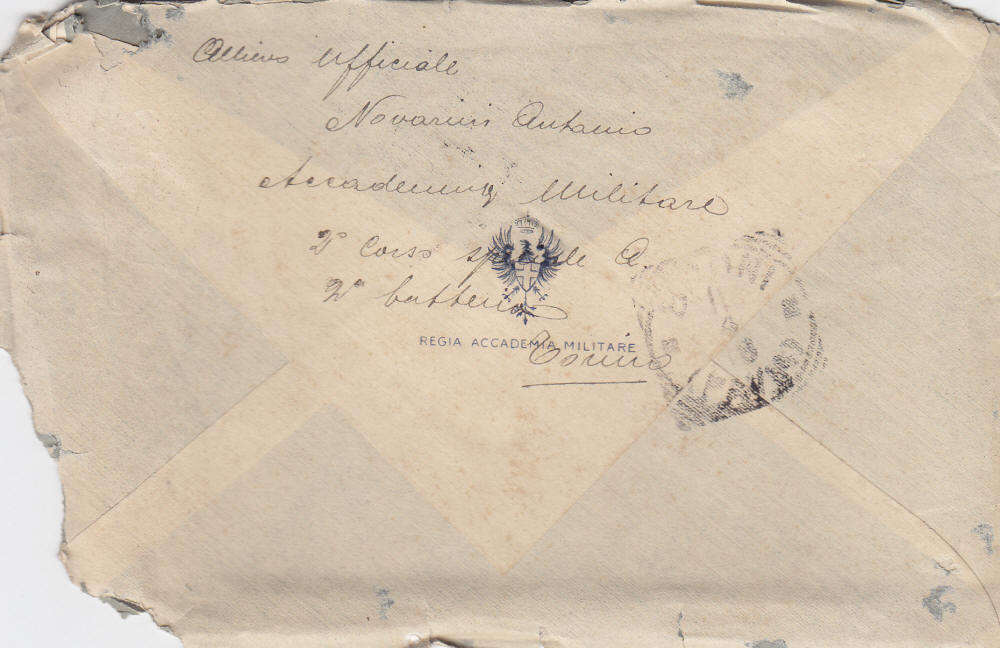 Allievo Ufficiale
Novarini Antonio
Accademia Militare
2º Corso speciale A.
2ª batteria
REGIA ACCADEMIA MILITARE
Torino